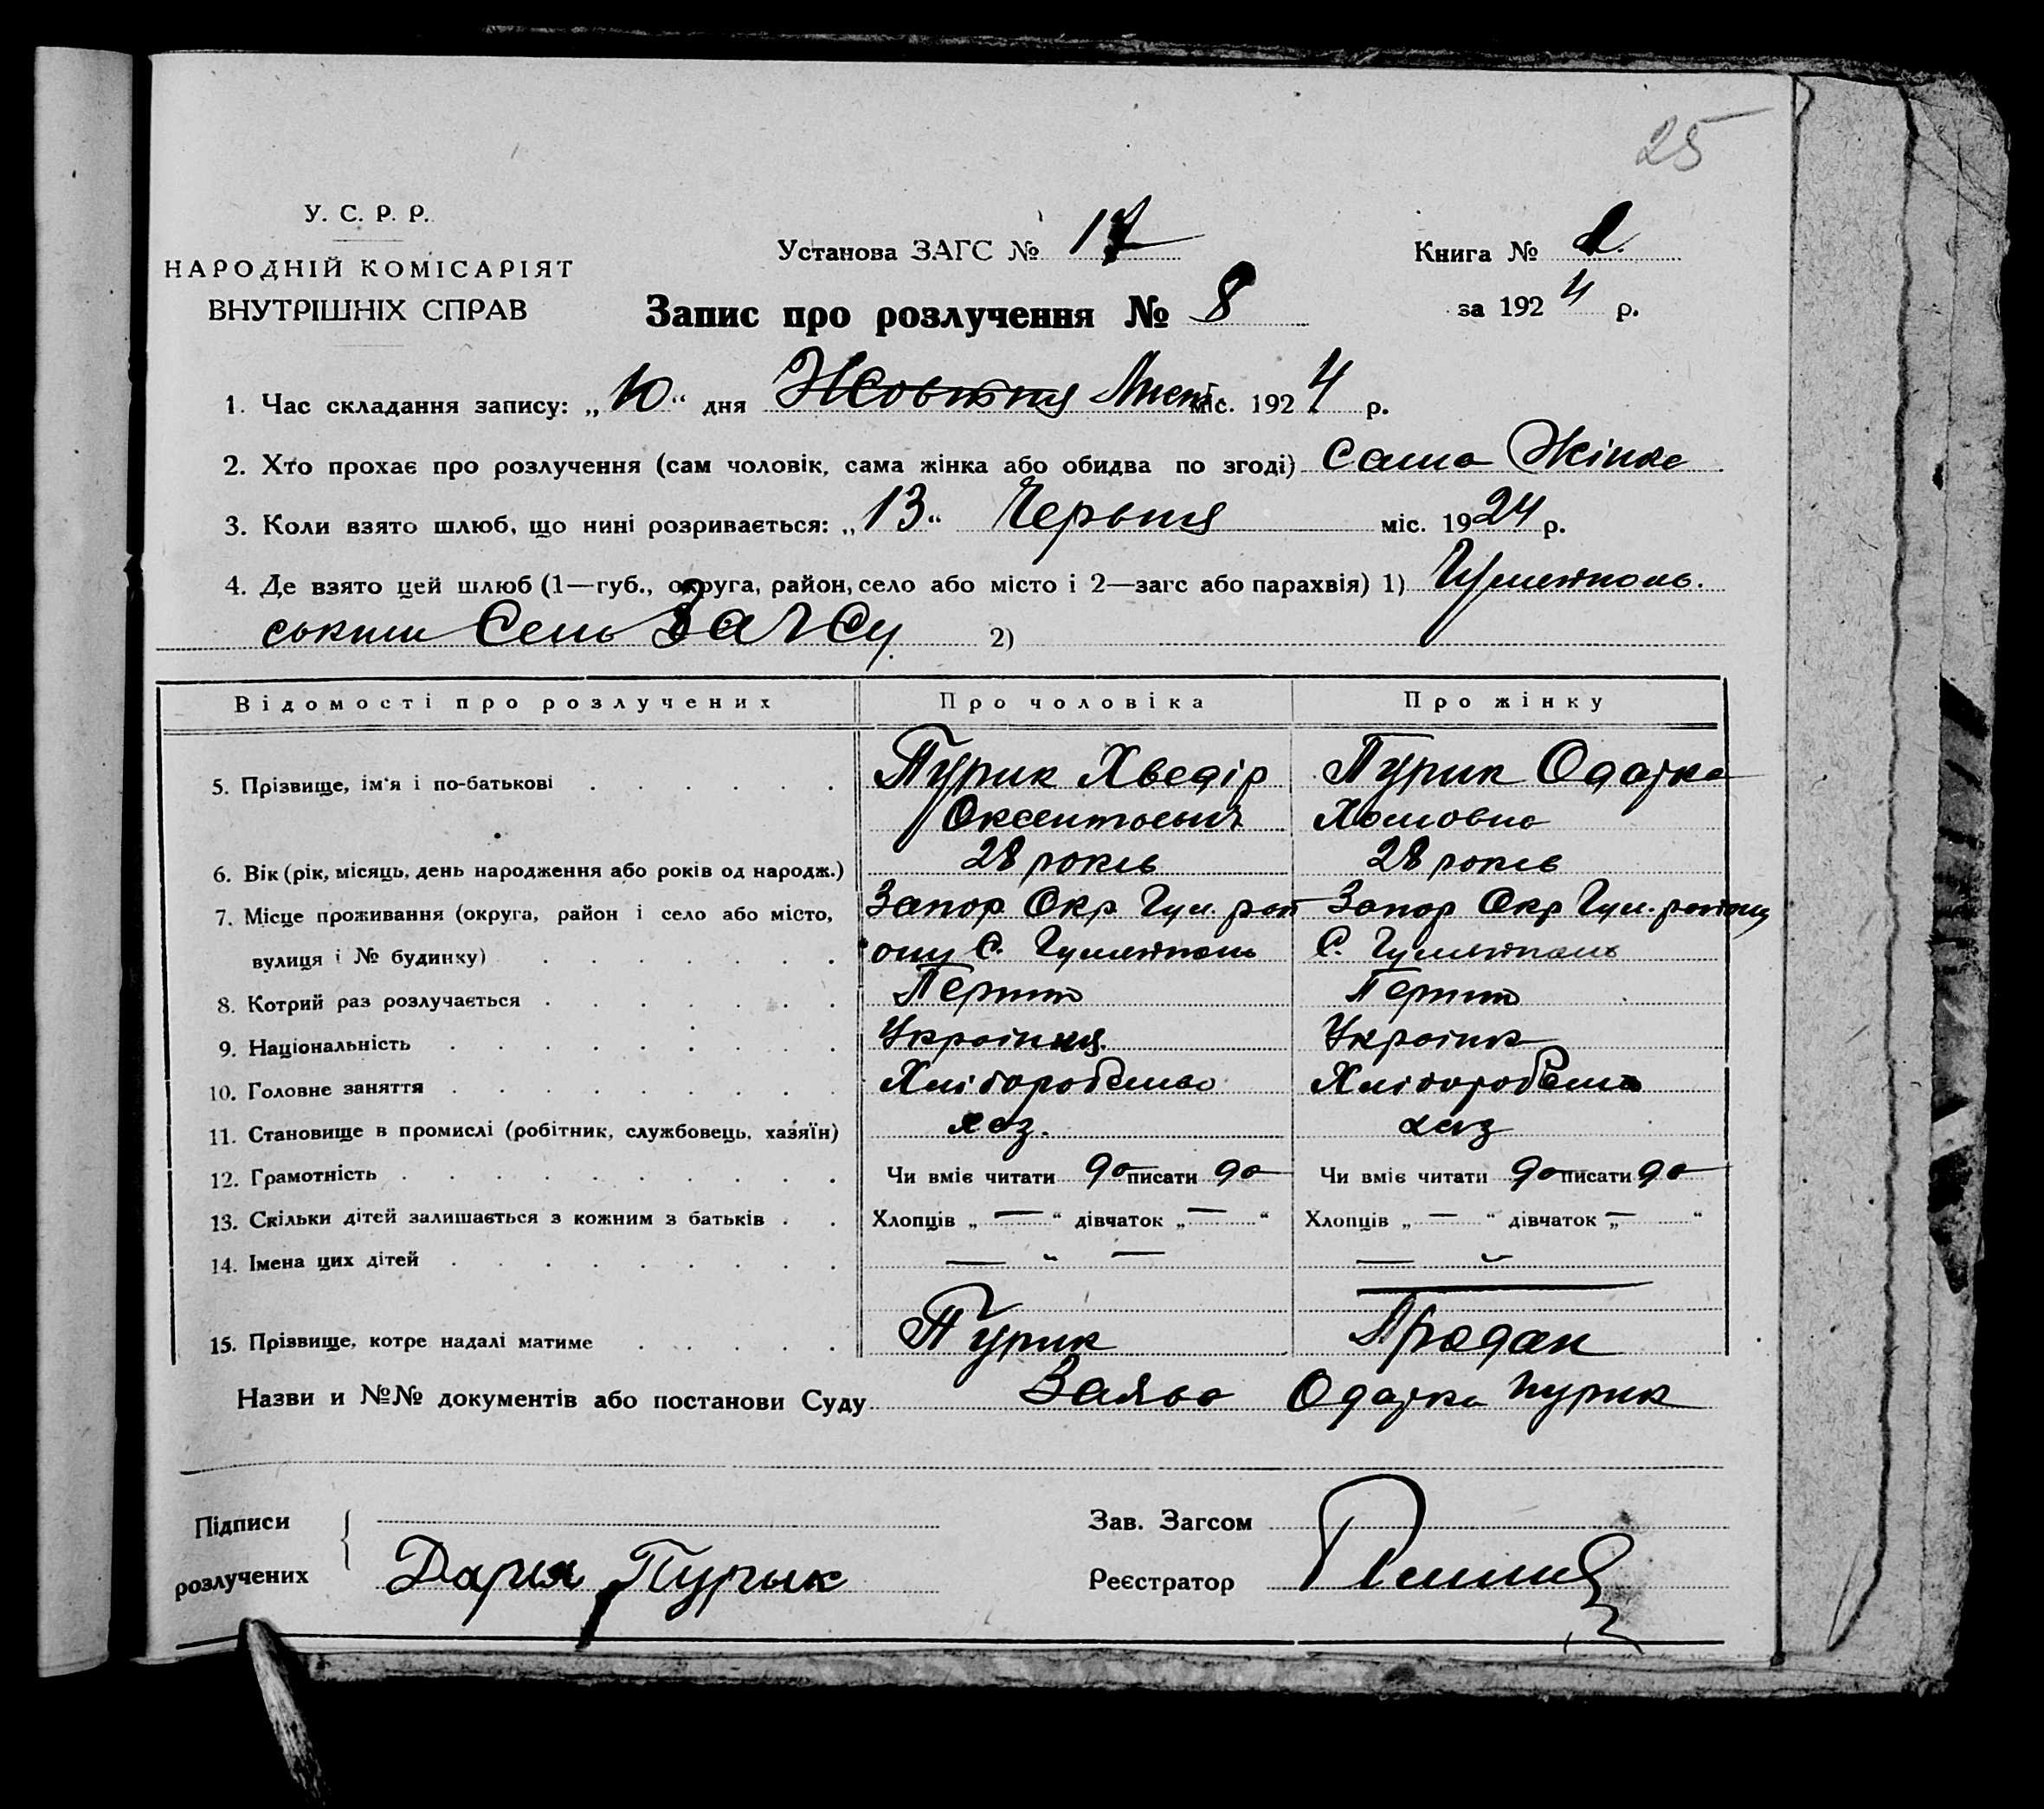 25
У. С. Р. Р.
НАРОДНІЙ КОМІСАРІЯТ
ВНУТРІШНІХ СПРАВ
Установа ЗАГС № 17
Книга №
Запис про розлучення № 8
за 1924 р.
1. Час складання запису: „10“ дня Жовтня Лист міс. 1924 р.
2. Хто прохає про розлучення (сам чоловік, сама жінка або обидва по згоді) сама Жінка
3. Коли взято шлюб, що нині розривається: „13“ Червня міс. 1924 р.
4. Де взято цей шлюб (1—губ., округа, район, село або місто і 2—загс або парахвія) 1) Гуляйполь.
ським Сель ЗагСу 2)
Відомості про розлучених Про чоловіка Про жінку
5. Прізвище, ім‘я і по-батькові Пурик Хведір Пурик Одарка
Оксентович Хомовна
6. Вік (рік, місяць, день народження або років од народж.) 28 років 28 років
7. Місце проживання (округа, район і село або місто, Запор. Окр. Гул. рай Запор Окр Гул. району
вулиця і № будинку) ону С. Гуляйполь С. Гуляйполь
8. Котрий раз розлучається
9. Національність Українця Українка
10. Головне заняття Хліборобство Хліборобство
11. Становище в промислі (робітник, службовець, хазяїн) хаз. хаз
12. Грамотність Чи вміє читати да писати да Чи вміє читати да писати да
13. Скільки дітей залишається з кожним з батьків Хлопців „—“ дівчаток „—“ Хлопців „—“ дівчаток „—“
14. Імена цих дітей — „ — — „
15. Прізвище, котре надалі матиме Пурик Продан
Назви и №№ документів або постанови Суду Заява Одарка Пурик
Підписи
розлучених
Дария Пурык
Зав. Загсом
Реєстратор